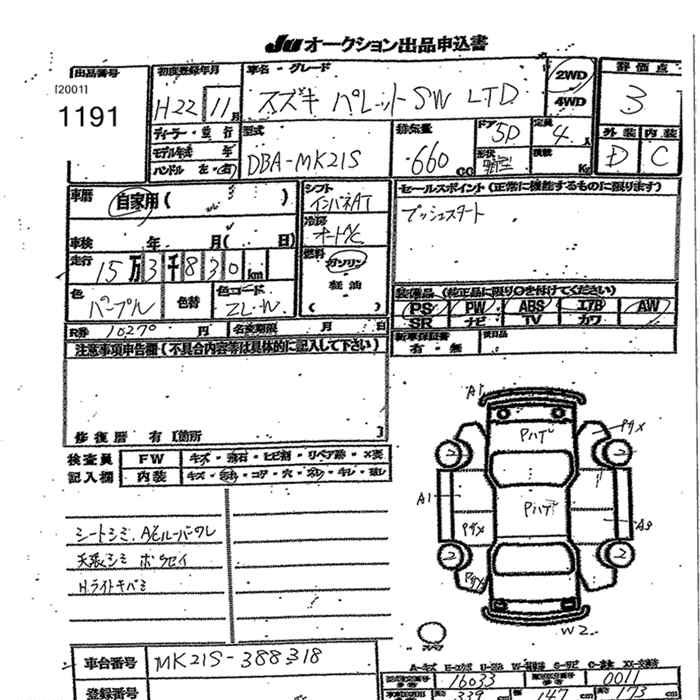 JU オークション出品申込書
出品番号
[2001]
1191
初度登録年月
H22 11月
車名・グレード
スズキ パレットSW LTD
2WD
4WD
評価点
3
外装 内装
D C
ディーラー・並行
モデル年式 年
ハンドル 左・右
型式
DBA-MK21S
排気量
660 cc
ドア 5D
形状
定員 4人
積載 Kg
車歴
自家用 ( )
車検 年 月 ( 日)
走行 15万3千830 km
色 パープル
色替
色コード ZL-W
シフト インパネAT
冷房 オートAC
燃料 ガソリン
軽油
( )
セールスポイント (正常に機能するものに限ります)
プッシュスタート
装備品 (純正品に限り○を付けてください)
PS PW ABS エアB AW
SR ナビ TV カワ
新車保証書
有・無
後日品
R券 10270 円
名変期限 月 日
注意事項申告欄 (不具合内容等は具体的に記入して下さい)
修復歴 有 [箇所 ]
検査員
記入欄
FW
キズ・飛石・ヒビ割・リペア跡・X要
内装
キズ・汚れ・コゲ・穴・スレ・キレ・ヨレ
シートシミ、A/Cルーバーワレ
天張シミ ボウセイ
H.ライトキバミ
A1
Pハゲ
Pダメ
A1
Pハゲ
Pダメ
A9
Pダメ
W2
スペア
2
2
2
2
A-キズ E-エクボ U-凹み W-補修跡 S-サビ C-腐食 XX-交換済
車台番号
MK21S-388318
登録番号
16033
0011
339
147
173